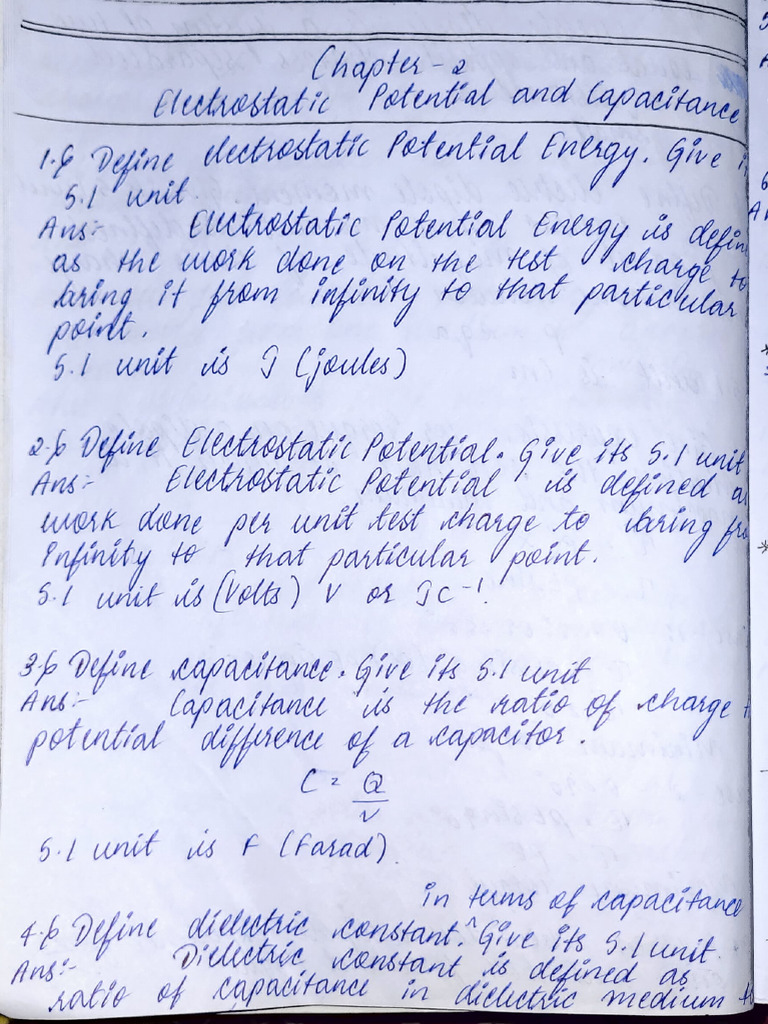 Chapter - 2
Electrostatic Potential and Capacitance
1.Q Define electrostatic Potential Energy. Give
S.I unit
Ans:- Electrostatic Potential Energy is defin
as the work done on the test charge to
bring it from infinity to that particular
point.
S.I unit is J (joules)
2.Q Define Electrostatic Potential. Give its S.I unit
Ans:- Electrostatic Potential is defined as
work done per unit test charge to bring fro
Infinity to that particular point.
S.I unit is (Volts) V or JC-1.
3.Q Define capacitance. Give its S.I unit
Ans:- Capacitance is the ratio of charge
potential difference of a capacitor.
C = Q
V
S.I unit is F (Farad).
in terms of capacitance
4.Q Define dielectric constant.^ Give its S.I unit.
Ans:- Dielectric constant is defined as
ratio of capacitance in dielectric medium